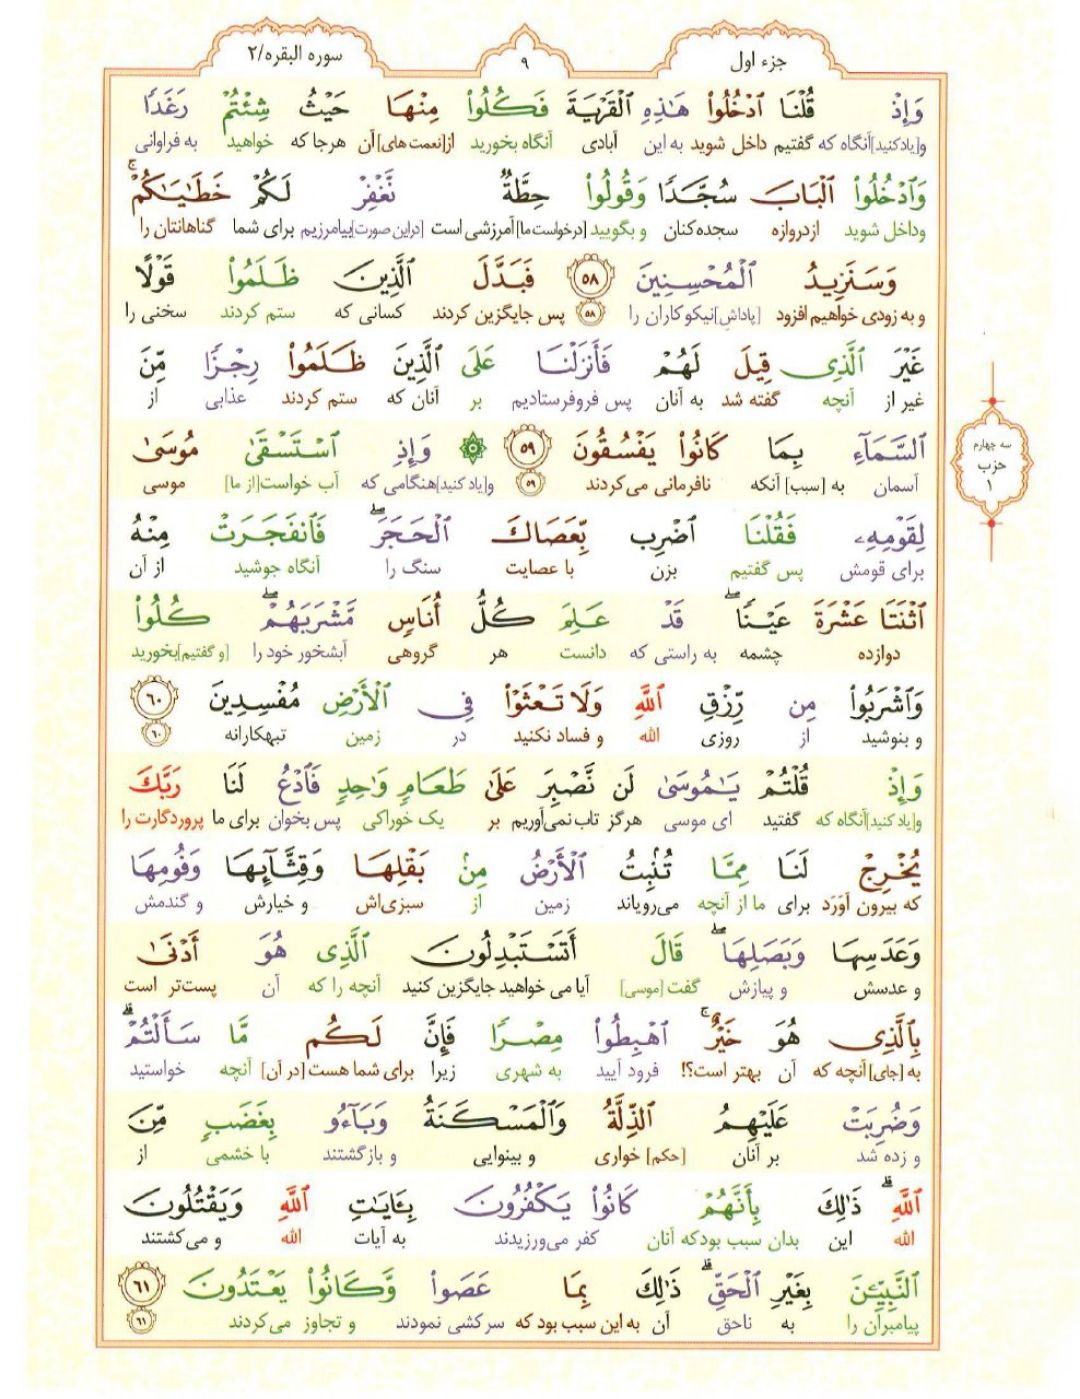 جزء اول
۹
سوره البقره/۲
وَإِذْ قُلْنَا ٱدْخُلُوا۟ هَـٰذِهِ ٱلْقَرْيَةَ فَكُلُوا۟ مِنْهَا حَيْثُ شِئْتُمْ رَغَدًا
و[یادکنید]آنگاه که گفتیم داخل شوید به این آبادی آنگاه بخورید از[نعمت های] آن هرجا که خواهید به فراوانی
وَٱدْخُلُوا۟ ٱلْبَابَ سُجَّدًا وَقُولُوا۟ حِطَّةٌ نَّغْفِرْ لَكُمْ خَطَـٰيَـٰكُمْ ۚ
وداخل شوید ازدروازه سجده‌کنان و بگویید [درخواست ما] آمرزشی است [دراین صورت]بیامرزیم برای شما گناهانتان را
وَسَنَزِيدُ ٱلْمُحْسِنِينَ ۵۸ فَبَدَّلَ ٱلَّذِينَ ظَلَمُوا۟ قَوْلًا
و به زودی خواهیم افزود [پاداش]نیکوکاران را ۵۸ پس جایگزین کردند کسانی که ستم کردند سخنی را
غَيْرَ ٱلَّذِى قِيلَ لَهُمْ فَأَنزَلْنَا عَلَى ٱلَّذِينَ ظَلَمُوا۟ رِجْزًا مِّنَ
غیر از آنچه گفته شد به آنان پس فروفرستادیم بر آنان که ستم کردند عذابی از
ٱلسَّمَآءِ بِمَا كَانُوا۟ يَفْسُقُونَ ۵۹ وَإِذِ ٱسْتَسْقَىٰ مُوسَىٰ
آسمان به [سبب] آنکه نافرمانی می‌کردند ۵۹ و[یاد کنید]هنگامی که آب خواست[از ما] موسی
سه چهارم
حزب
۱
لِقَوْمِهِۦ فَقُلْنَا ٱضْرِب بِّعَصَاكَ ٱلْحَجَرَ ۖ فَٱنفَجَرَتْ مِنْهُ
برای قومش پس گفتیم بزن با عصایت سنگ را آنگاه جوشید از آن
ٱثْنَتَا عَشْرَةَ عَيْنًا ۖ قَدْ عَلِمَ كُلُّ أُنَاسٍ مَّشْرَبَهُمْ ۖ كُلُوا۟
دوازده چشمه به راستی که دانست هر گروهی آبشخور خود را [و گفتیم]بخورید
وَٱشْرَبُوا۟ مِن رِّزْقِ ٱللَّهِ وَلَا تَعْثَوْا۟ فِى ٱلْأَرْضِ مُفْسِدِينَ ۶۰
و بنوشید از روزی الله و فساد نکنید در زمین تبهکارانه ۶۰
وَإِذْ قُلْتُمْ يَـٰمُوسَىٰ لَن نَّصْبِرَ عَلَىٰ طَعَامٍ وَٰحِدٍ فَٱدْعُ لَنَا رَبَّكَ
و[یاد کنید]آنگاه که گفتید ای موسی هرگز تاب نمی‌آوریم بر یک خوراکی پس بخوان برای ما پروردگارت را
يُخْرِجْ لَنَا مِمَّا تُنۢبِتُ ٱلْأَرْضُ مِنۢ بَقْلِهَا وَقِثَّآئِهَا وَفُومِهَا
که بیرون آوَرَد برای ما از آنچه می‌رویاند زمین از سبزی‌اش و خیارش و گندمش
وَعَدَسِهَا وَبَصَلِهَا ۖ قَالَ أَتَسْتَبْدِلُونَ ٱلَّذِى هُوَ أَدْنَىٰ
و عدسش و پیازش گفت [موسی] آیا می خواهید جایگزین کنید آنچه را که آن پست‌تر است
بِٱلَّذِى هُوَ خَيْرٌ ۚ ٱهْبِطُوا۟ مِصْرًا فَإِنَّ لَكُم مَّا سَأَلْتُمْ ۗ
به [جای] آنچه که آن بهتر است؟! فرود آیید به شهری زیرا برای شما هست [در آن] آنچه خواستید
وَضُرِبَتْ عَلَيْهِمُ ٱلذِّلَّةُ وَٱلْمَسْكَنَةُ وَبَآءُو بِغَضَبٍ مِّنَ
و زده شد بر آنان [حکم] خواری و بینوایی و بازگشتند با خشمی از
ٱللَّهِ ۗ ذَٰلِكَ بِأَنَّهُمْ كَانُوا۟ يَكْفُرُونَ بِـَٔايَـٰتِ ٱللَّهِ وَيَقْتُلُونَ
الله این بدان سبب بودکه آنان کفر می‌ورزیدند به آیات الله و می‌کشتند
ٱلنَّبِيِّـۧنَ بِغَيْرِ ٱلْحَقِّ ۗ ذَٰلِكَ بِمَا عَصَوا۟ وَّكَانُوا۟ يَعْتَدُونَ ۶۱
پیامبران را به ناحق آن به این سبب بود که سرکشی نمودند و تجاوز می‌کردند ۶۱